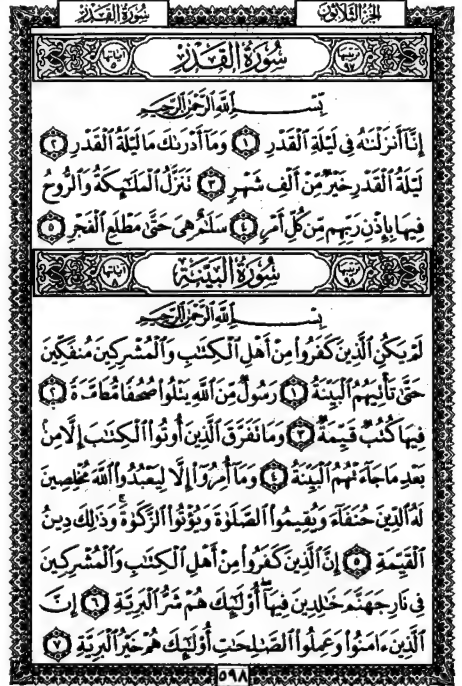 سُورَةُ القَدْرِ الجُزْءُ الثَّلَاثُونَ
ترتيبها ٩٧ سُورَةُ القَدْرِ آياتها ٥
بِسْمِ ٱللَّهِ ٱلرَّحْمَٰنِ ٱلرَّحِيمِ
إِنَّآ أَنزَلْنَٰهُ فِى لَيْلَةِ ٱلْقَدْرِ ١ وَمَآ أَدْرَىٰكَ مَا لَيْلَةُ ٱلْقَدْرِ ٢
لَيْلَةُ ٱلْقَدْرِ خَيْرٌ مِّنْ أَلْفِ شَهْرٍ ٣ تَنَزَّلُ ٱلْمَلَٰٓئِكَةُ وَٱلرُّوحُ
فِيهَا بِإِذْنِ رَبِّهِم مِّن كُلِّ أَمْرٍ ٤ سَلَٰمٌ هِىَ حَتَّىٰ مَطْلَعِ ٱلْفَجْرِ ٥
ترتيبها ٩٨ سُورَةُ البَيِّنَةِ آياتها ٨
بِسْمِ ٱللَّهِ ٱلرَّحْمَٰنِ ٱلرَّحِيمِ
لَمْ يَكُنِ ٱلَّذِينَ كَفَرُوا۟ مِنْ أَهْلِ ٱلْكِتَٰبِ وَٱلْمُشْرِكِينَ مُنفَكِّينَ
حَتَّىٰ تَأْتِيَهُمُ ٱلْبَيِّنَةُ ١ رَسُولٌ مِّنَ ٱللَّهِ يَتْلُوا۟ صُحُفًا مُّطَهَّرَةً ٢
فِيهَا كُتُبٌ قَيِّمَةٌ ٣ وَمَا تَفَرَّقَ ٱلَّذِينَ أُوتُوا۟ ٱلْكِتَٰبَ إِلَّا مِنۢ
بَعْدِ مَا جَآءَتْهُمُ ٱلْبَيِّنَةُ ٤ وَمَآ أُمِرُوٓا۟ إِلَّا لِيَعْبُدُوا۟ ٱللَّهَ مُخْلِصِينَ
لَهُ ٱلدِّينَ حُنَفَآءَ وَيُقِيمُوا۟ ٱلصَّلَوٰةَ وَيُؤْتُوا۟ ٱلزَّكَوٰةَ ۚ وَذَٰلِكَ دِينُ
ٱلْقَيِّمَةِ ٥ إِنَّ ٱلَّذِينَ كَفَرُوا۟ مِنْ أَهْلِ ٱلْكِتَٰبِ وَٱلْمُشْرِكِينَ
فِى نَارِ جَهَنَّمَ خَٰلِدِينَ فِيهَآ ۚ أُو۟لَٰٓئِكَ هُمْ شَرُّ ٱلْبَرِيَّةِ ٦ إِنَّ
ٱلَّذِينَ ءَامَنُوا۟ وَعَمِلُوا۟ ٱلصَّٰلِحَٰتِ أُو۟لَٰٓئِكَ هُمْ خَيْرُ ٱلْبَرِيَّةِ ٧
٥٩٨